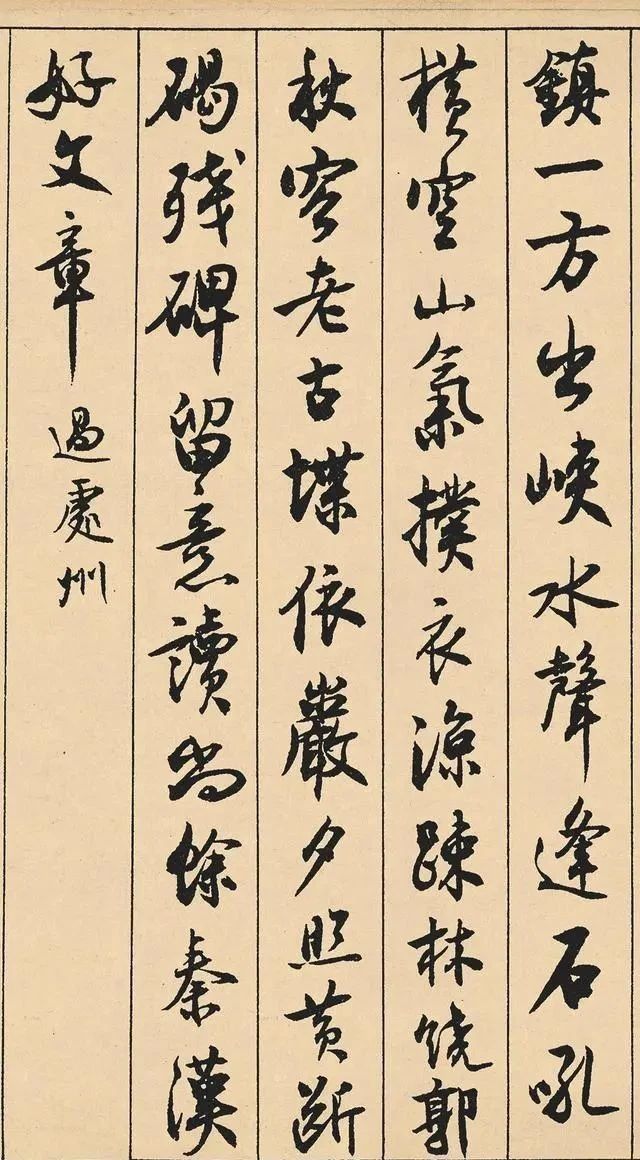 鎮一方出峽水聲逢石吼
橫空山氣撲衣涼疎林饒郭
秋容老古堞依巖夕照黃斷
碣殘碑留意讀尚餘秦漢
好文章 過處州